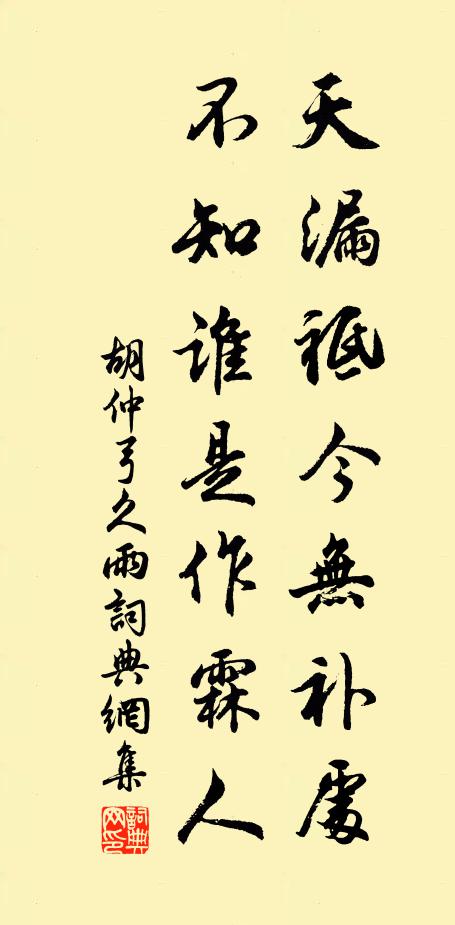 天漏祗今無补處
不知誰是作霖人
胡仲弓久雨詞典網集
詞典网印